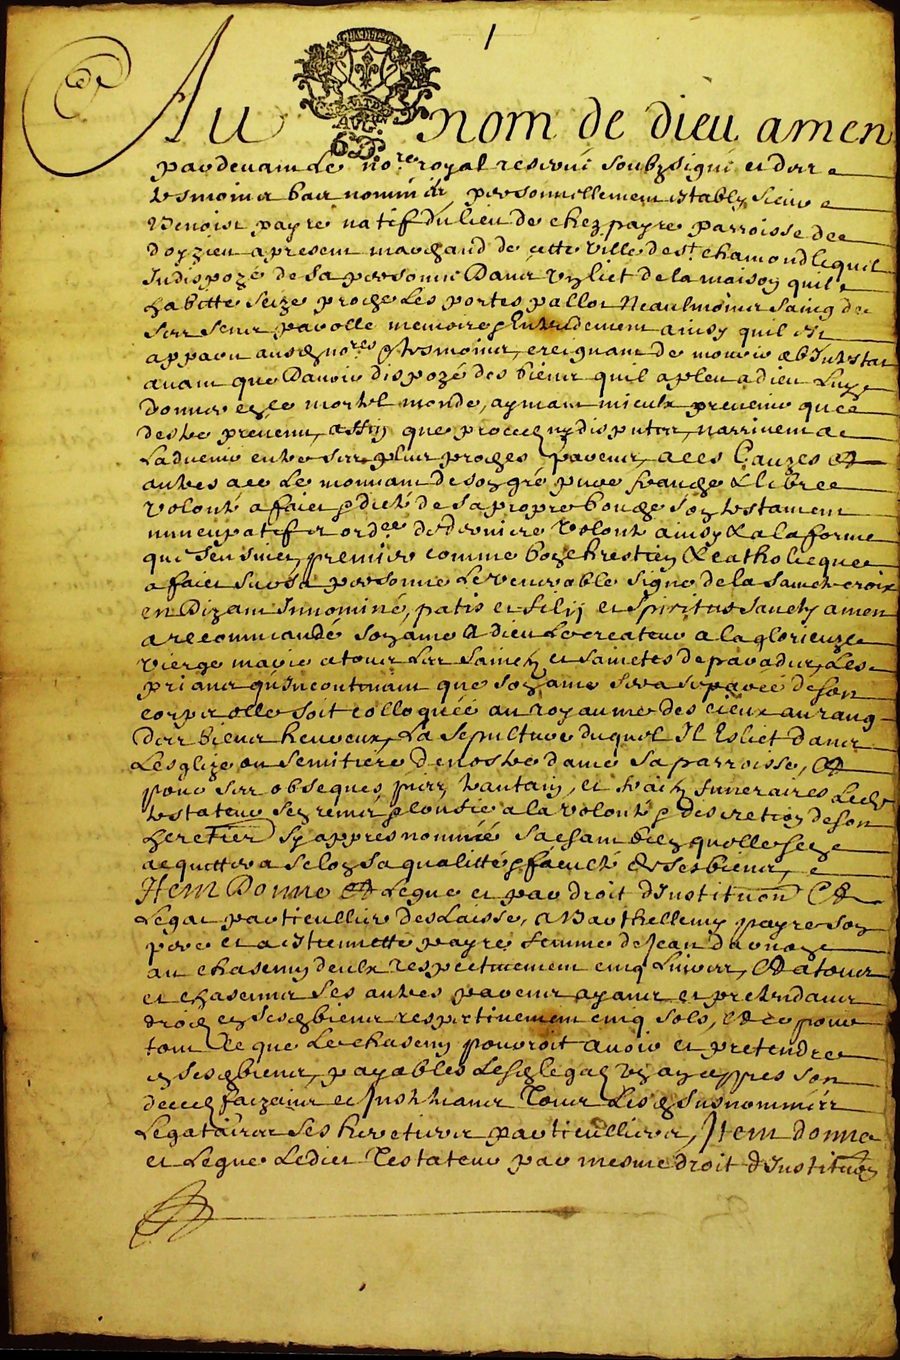 1
Au nom de dieu amen
pardevant Le no.re royal reservé soubzsigné et des
tesmoins bas nommés personnellement estably sieur
Benoist payre natif du lieu de chez payre parroisse de
doyzieu apresent marchand de cette ville de st chamond lequel
Indispozé de sa personne Dans un lict de la maison quil
habitte size proche Les portes pallor Neaulmoins saing de
ses sens parolle memoire & Entendement ainsy quil est
apparu ausd no.res & tesmoins, creignant de mourir abIntestat
avant que Davoir dispozé des biens quil a pleu a dieu Luy
donner en ce mortel monde, aymant mieulx prevenir que
destre prevenu, affin que proces ny disputes, narrivent a
Ladvenir entre ses plus proches parens, a ces Cauzes et
autres a ce Le mouvant de son gré pure franche & libre
volonté a faict & dicté de sa propre bouche son testament
nuncupatif et ord.re de derniere volonté ainsy & a la forme
que sensuict, premier comme bon chrestien & catholicque
a faict sur sa personne Le venerable signe de la saincte croix
en Dizant Innominé, patis et filij et spiritus sancty amen
a recommandé son ame A dieu Le createur a la glorieuze
vierge marie a tous Les saincts et sainctes de paradis, Les
priant qu'Incontinant que son ame sera separée de son
corps elle soit colloquée au royaume des cieux au rang
des biens heureux, La sepulture duquel Il Eslict dans
Lesglize ou semitiere de nostre dame sa parroisse, et
pour ses obseques, et fraits funeraires Ledt
testateur sen remet a la volonté & discretion de son
heretier sy appres nommé sachant bien quelle sen
acquittera selon sa qualitté & faculté de ses biens,
Item Donne et Legue et par droit d'Institution et
Legat particullier deslaisse, a Barthellemy payre son
pere et a estiennette payre femme de Jean davnoze
au chascung deulx respectivement cinq Livres, et a tous
et chascuns ses autres parens ayant et pretendant
droict en sesd biens respectivement cinq sols, et ce pour
tout Ce que Le chascung pouroit avoir et pretendre
en sesd biens, payables Lesd legatz un an appres son
deces faizant et Instituant Tous Lesd susnommés
Legataires ses heretiers particulliers, Item donne
et Legue Ledict Testateur par mesme droit d'Institution